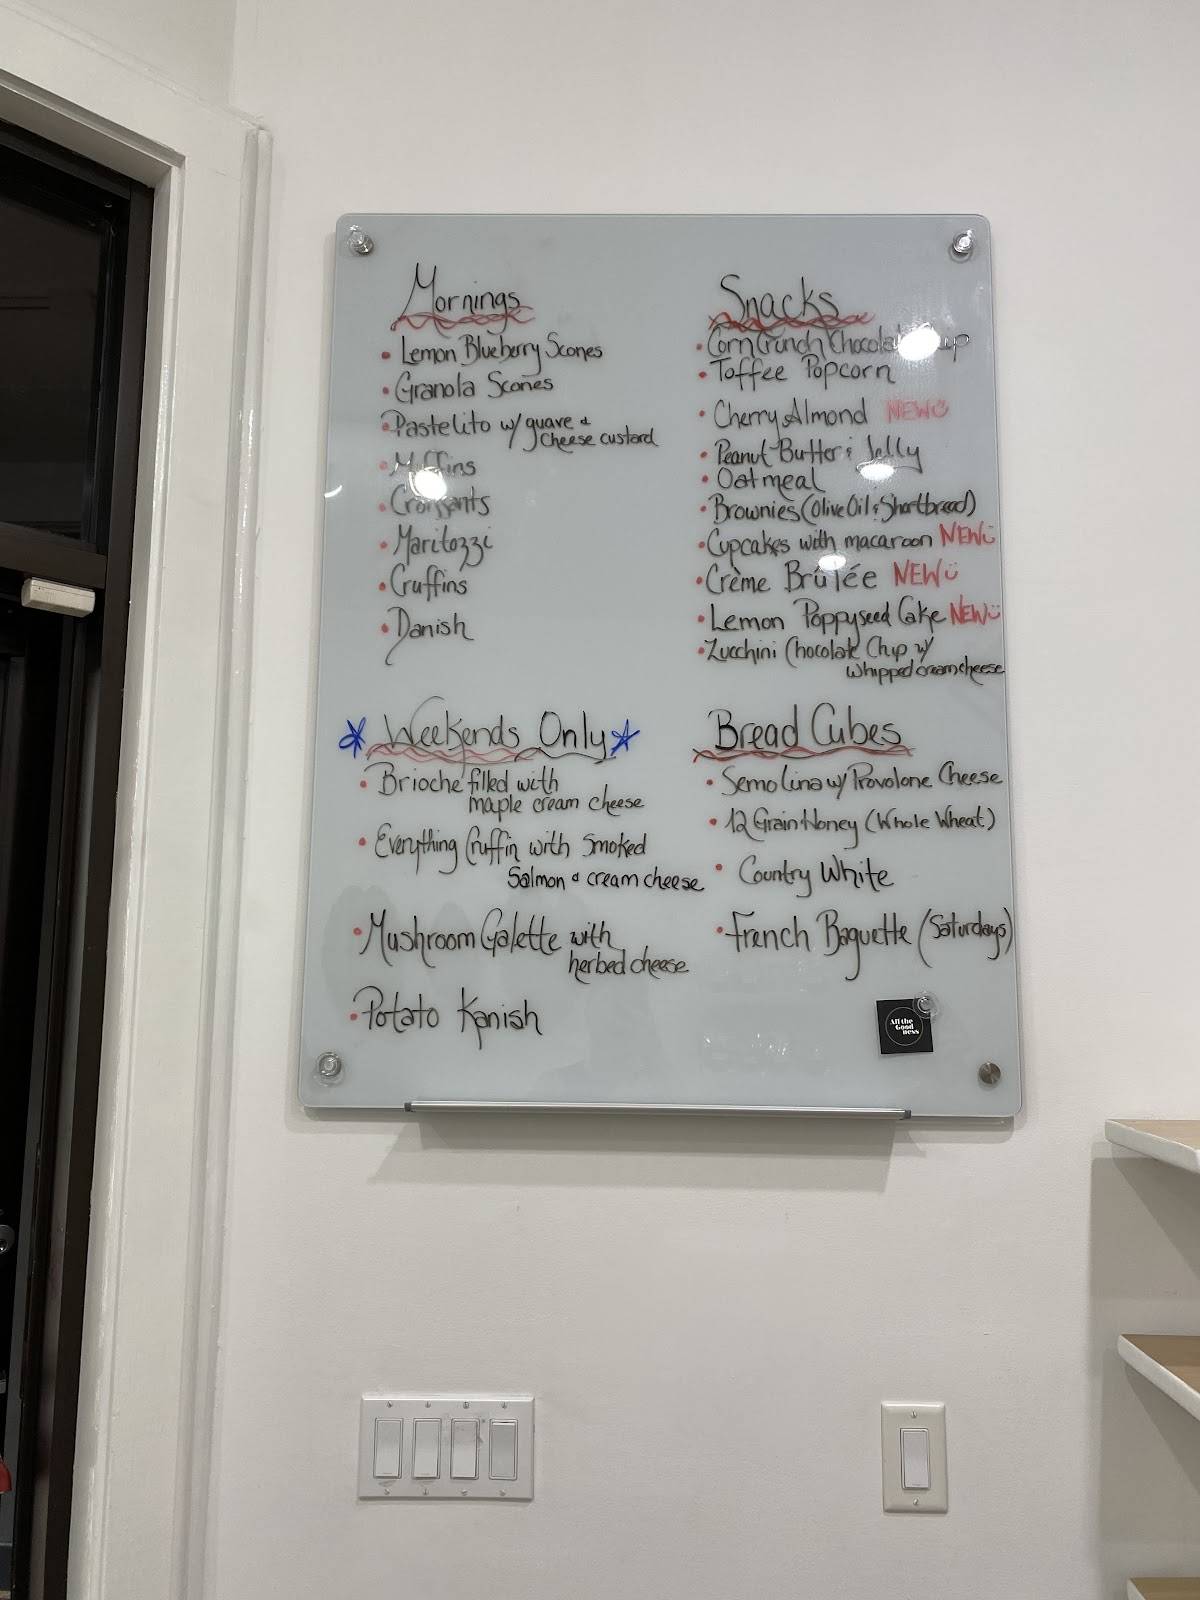 Mornings
• Lemon Blueberry Scones
• Granola Scones
• Pastelito w/ guave &
cheese custard
• Muffins
• Croissants
• Maritozzi
• Cruffins
• Danish
Weekends Only
• Brioche filled with
maple cream cheese
• Everything Cruffin with Smoked
Salmon & cream cheese
• Mushroom Galette with
herbed cheese
• Potato Kanish
Snacks
• Corn Crunch Chocolate
• Toffee Popcorn
• Cherry Almond NEW
• Peanut Butter & Jelly
• Oatmeal
• Brownies (Olive Oil & Shortbread)
• Cupcakes with macaroon NEW
• Crème Brûlée NEW
• Lemon Poppyseed Cake NEW
• Zucchini Chocolate Chip w/
whipped cream cheese
Bread Cubes
• Semolina w/ Provolone Cheese
• 12 Grain Honey (Whole Wheat)
• Country White
• French Baguette (Saturdays)
All the
Good
ness